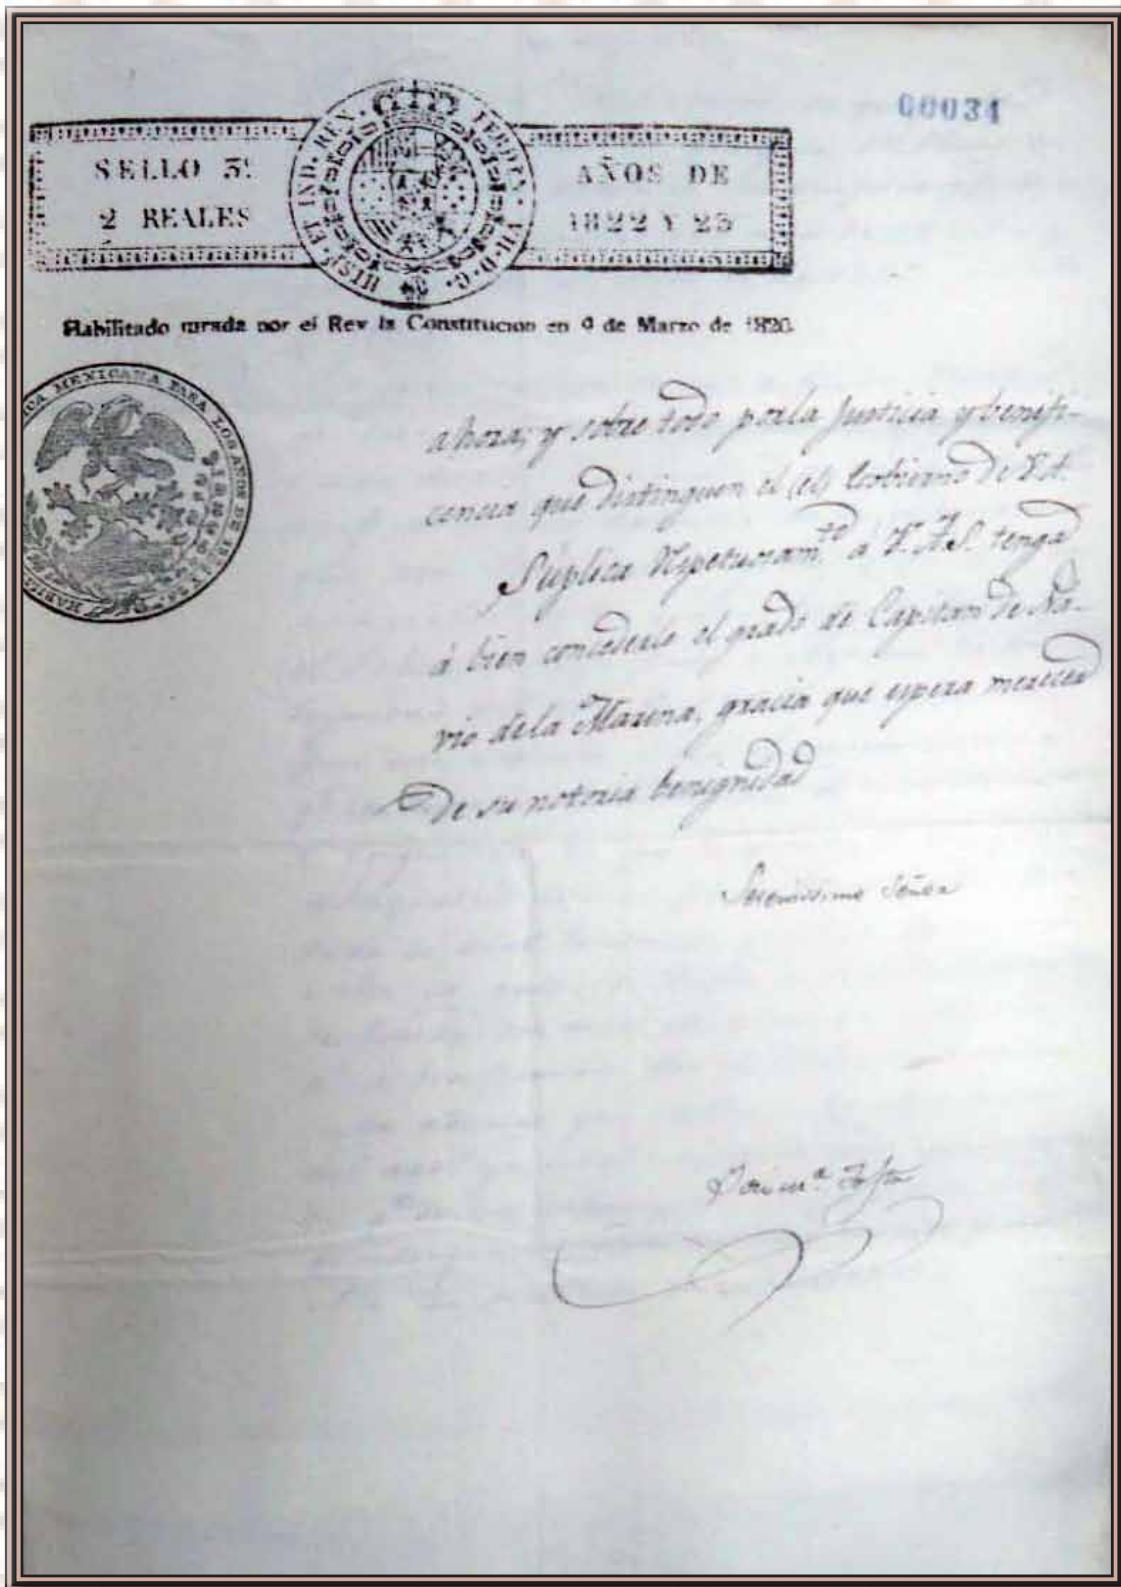 00034
SELLO 3º
2 REALES
HISP. ET IND. REX. FERDIN. VII. D. G.
AÑOS DE
1822 Y 23
Habilitado jurada por el Rey la Constitucion en 9 de Marzo de 1820.
ICA MEXICANA PARA LOS AÑOS DE
ahora, y sobre todo por la Justicia y benefi-
cencia que distinguen el (el) Gobierno de V.A.
Suplica respetuosam.te á V.A.S. tenga
á bien concederle el grado de Capitan de Na-
vio de la Marina, gracia que espera merecer
de su notoria benignidad
Serenisimo Señor
José M.ª Tosta